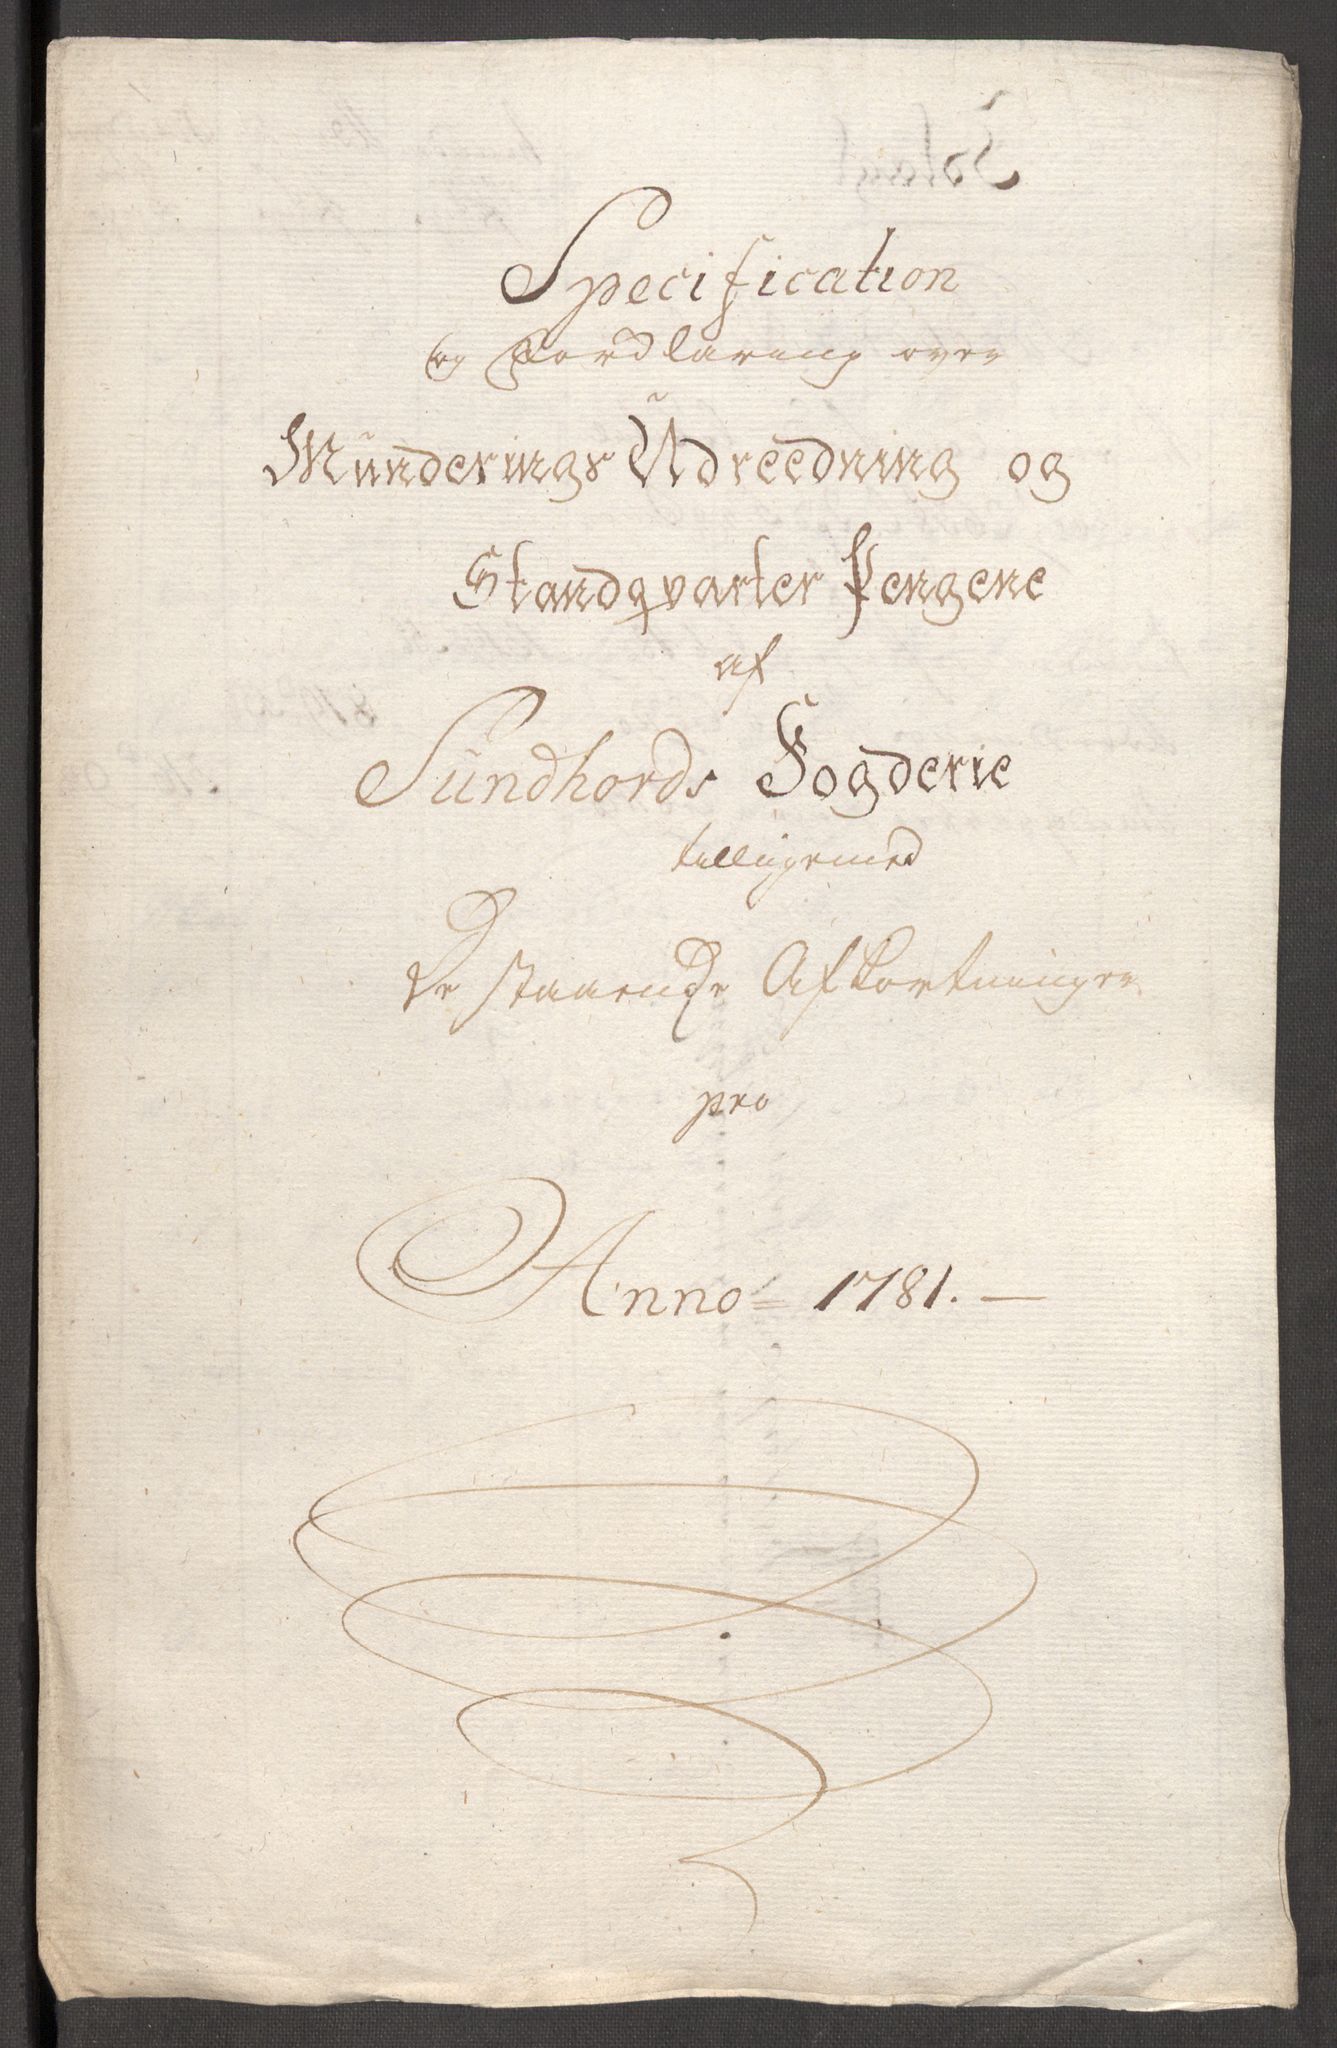 Specification
og Forklaring over
Münderings Üdreedning og
Standqvarter Pengene
af
Sündhords Fogderie
tilligemed
De staaende Afkortninger
pro
Anno = 1781. —